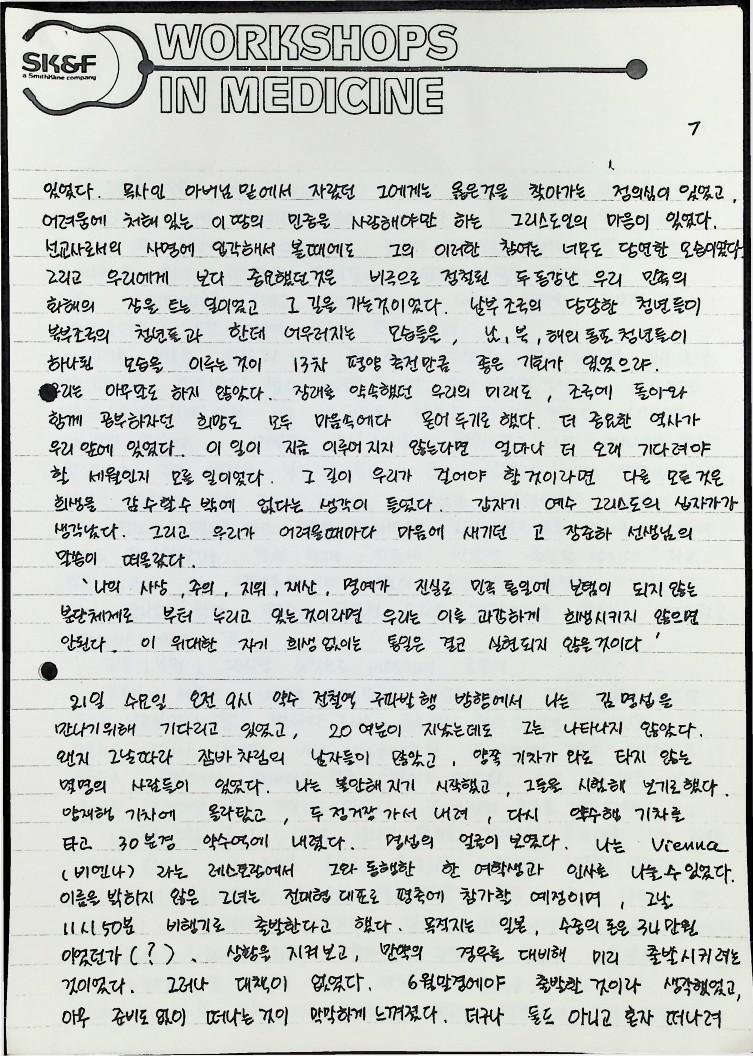 SK&F
a SmithKline company
WORKSHOPS
IN MEDICINE
7
있었다. 목사인 아버님 밑에서 자랐던 그에게는 옳은것을 찾아가는 정의심이 있었고,
어려움에 처해 있는 이 땅의 민중을 사랑해야만 하는 그리스도인의 마음이 있었다.
선교사로서의 사명에 입각해서 볼때에도 그의 이러한 참여는 너무도 당연한 모습이었다.
그리고 우리에게 보다 중요했던것은 비극으로 점철된 두동강난 우리 민족의
화해의 장을 트는 일이었고 그 길을 가는것이었다. 남부조국의 당당한 청년들이
북부조국의 청년들과 한데 어우러지는 모습들을, 남, 북, 해외동포 청년들이
하나된 모습을 이루는것이 13차 평양 축전만큼 좋은 기회가 있었으랴.
우리는 아무말도 하지 않았다. 장래를 약속했던 우리의 미래도, 조국에 돌아와
함께 공부하자던 희망도 모두 마음속에다 묻어 두기로 했다. 더 중요한 역사가
우리 앞에 있었다. 이 일이 지금 이루어지지 않는다면 얼마나 더 오래 기다려야
할 세월인지 모를 일이었다. 그 길이 우리가 걸어야 할것이라면 다른 모든것은
희생을 감수할수 밖에 없다는 생각이 들었다. 갑자기 예수 그리스도의 십자가가
생각났다. 그리고 우리가 어려울때마다 마음에 새기던 고 장준하 선생님의
말씀이 떠올랐다.
'나의 사상, 주의, 지위, 재산, 명예가 진실로 민족 통일에 보탬이 되지 않는
분단체제로 부터 누리고 있는것이라면 우리는 이를 과감하게 희생시키지 않으면
안된다. 이 위대한 자기 희생 없이는 통일은 결코 실현되지 않을것이다'
21일 수요일 오전 9시 약수 전철역 구파발행 방향에서 나는 김명섭을
만나기위해 기다리고 있었고, 20여분이 지났는데도 그는 나타나지 않았다.
왠지 그날따라 잠바차림의 남자들이 많았고, 양쪽 기차가 와도 타지 않는
몇명의 사람들이 있었다. 나는 불안해지기 시작했고, 그들을 시험해 보기로했다.
양재행 기차에 올라탔고, 두정거장 가서 내려, 다시 약수행 기차를
타고 30분경 약수역에 내렸다. 명섭의 얼굴이 보였다. 나는 Vienna
(비엔나) 라는 레스토랑에서 그와 동행한 한 여학생과 인사를 나눌수 있었다.
이름을 밝히지 않은 그녀는 전대협 대표로 평축에 참가할 예정이며, 그날
11시50분 비행기로 출발한다고 했다. 목적지는 일본, 수중의 돈은 34만원
이었던가(?). 상황을 지켜보고, 만약의 경우를 대비해 미리 출발시키려는
것이었다. 그러나 대책이 없었다. 6월말경에야 출발할 것이라 생각했었고,
아무 준비도 없이 떠나는것이 막막하게 느껴졌다. 더구나 둘도 아니고 혼자 떠나려